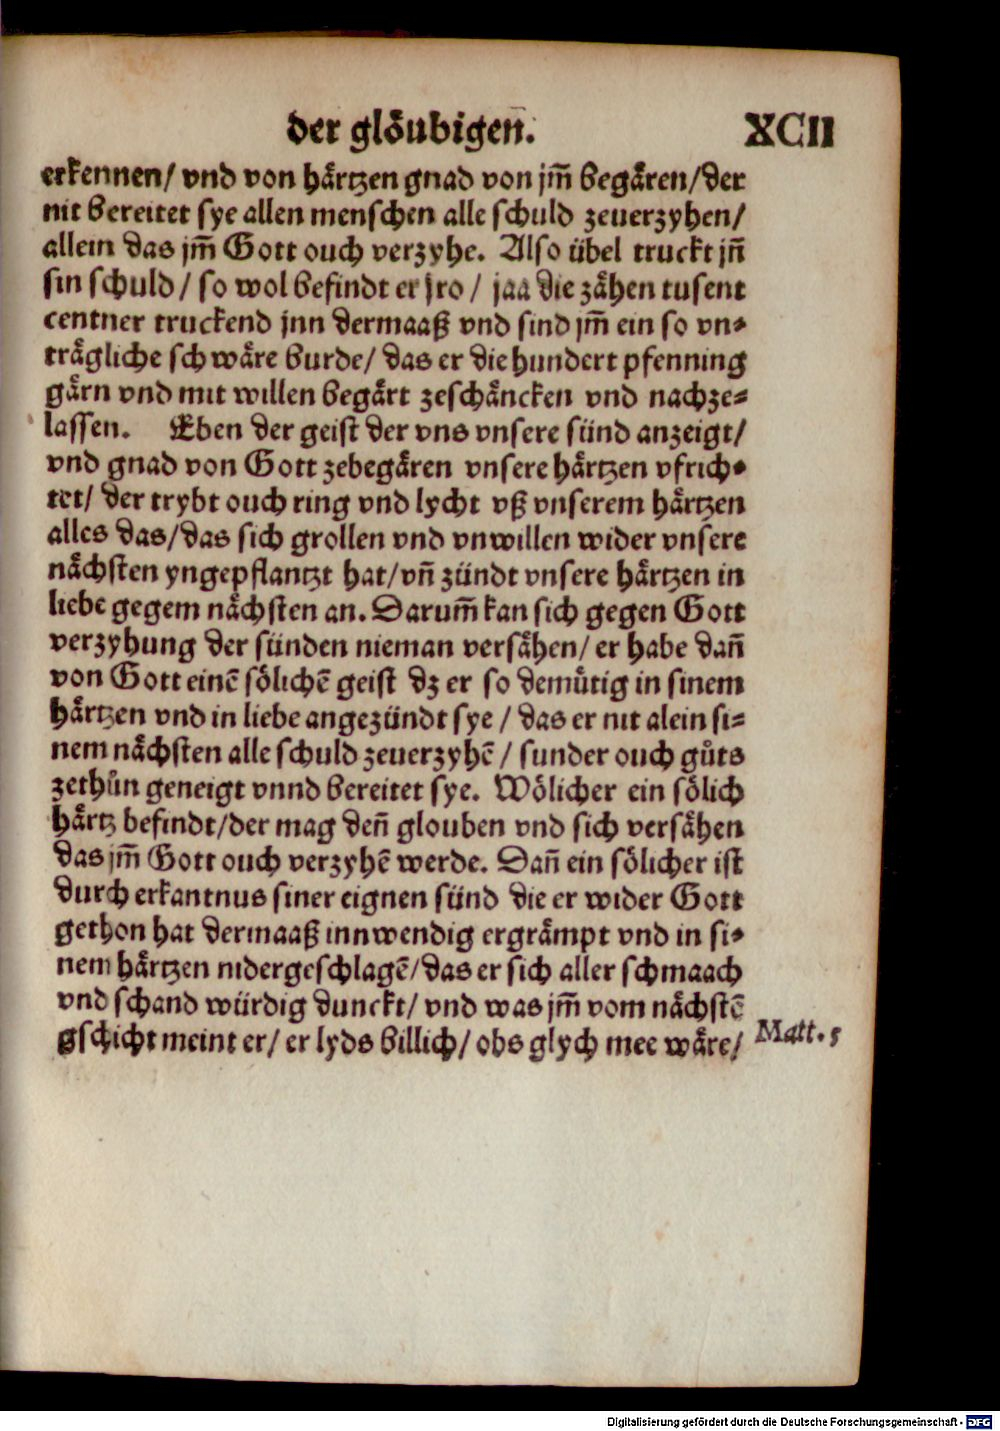 der gloͤubigen̄.
XCII
erkennen/ vnd von haͤrtzen gnad von jm̄ begaͤren/der
nit bereitet sye allen menschen alle schuld zeuerzyhen/
allein das jm̄ Gott ouch verzyhe. Also übel truckt jn̄
sin schuld/ so wol befindt er jro/ jaa die zaͤhen tusent
centner truckend jnn dermaaß vnd sind jm̄ ein so vn-
traͤgliche schwaͤre burde/ das er die hundert pfenning
gaͤrn vnd mit willen begaͤrt zeschaͤncken vnd nachze-
lassen. Eben der geist der vns vnsere sünd anzeigt/
vnd gnad von Gott zebegaͤren vnsere haͤrtzen vfrich-
tet/ der trybt ouch ring vnd lycht vß vnserem haͤrtzen
alles das/das sich grollen vnd vnwillen wider vnsere
naͤchsten yngepflantzt hat/vn̄ zündt vnsere haͤrtzen in
liebe gegem naͤchsten an. Darum̄ kan sich gegen Gott
verzyhung der sünden nieman versaͤhen/ er habe dan̄
von Gott einē soͤlichē geist dz er so demuͤtig in sinem
haͤrtzen vnd in liebe angezündt sye/ das er nit alein si-
nem naͤchsten alle schuld zeuerzyhē/ sunder ouch guͦts
zethuͦn geneigt vnnd bereitet sye. Woͤlicher ein soͤlich
haͤrtz befindt/der mag den̄ glouben vnd sich versaͤhen
das jm̄ Gott ouch verzyhē werde. Dan̄ ein soͤlicher ist
durch erkantnus siner eignen sünd die er wider Gott
gethon hat dermaaß innwendig ergraͤmpt vnd in si-
nem haͤrtzen nidergeschlagē/das er sich aller schmaach
vnd schand würdig dunckt/ vnd was jm̄ vom naͤchstē
gschicht meint er/ er lyds billich/ obs glych mee waͤre/
Matt. 5
Digitalisierung gefördert durch die Deutsche Forschungsgemeinschaft - DFG